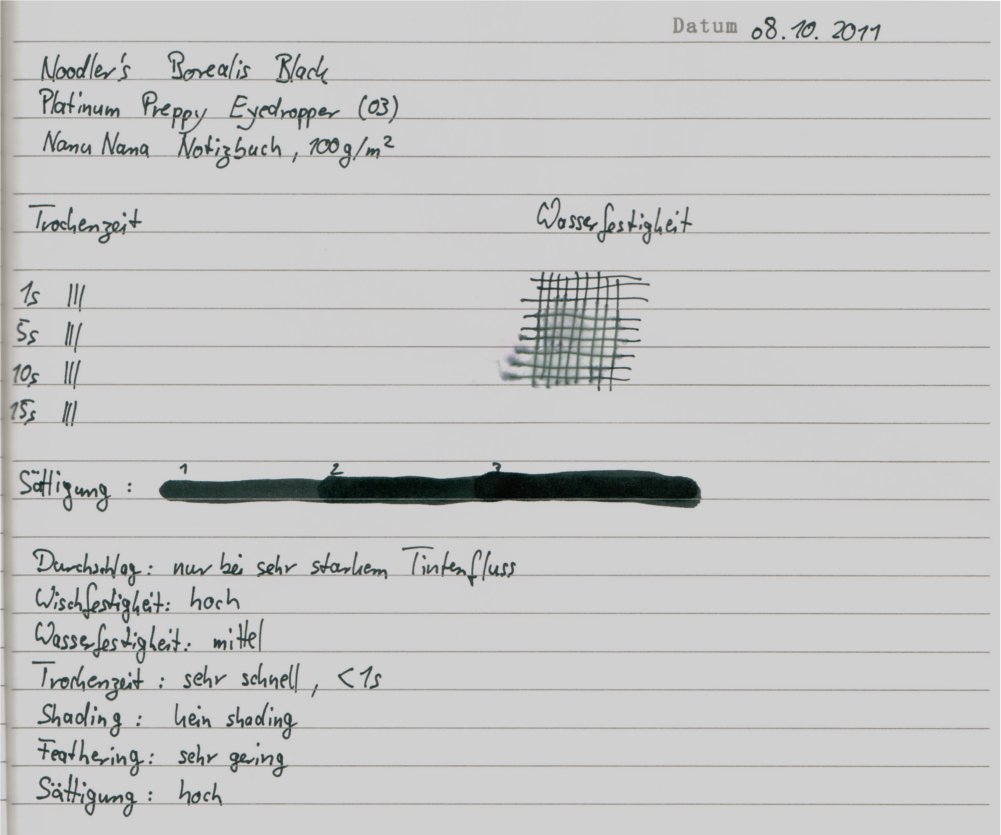 Datum 08.10.2011
Noodler's Borealis Black
Platinum Preppy Eyedropper (03)
Nanu Nana Notizbuch, 100g/m²
Trockenzeit Wasserfestigkeit
1s |||
5s |||
10s |||
15s |||
1 2 3
Sättigung:
Durchschlag: nur bei sehr starkem Tintenfluss
Wischfestigkeit: hoch
Wasserfestigkeit: mittel
Trockenzeit: sehr schnell, <1s
Shading: kein shading
Feathering: sehr gering
Sättigung: hoch